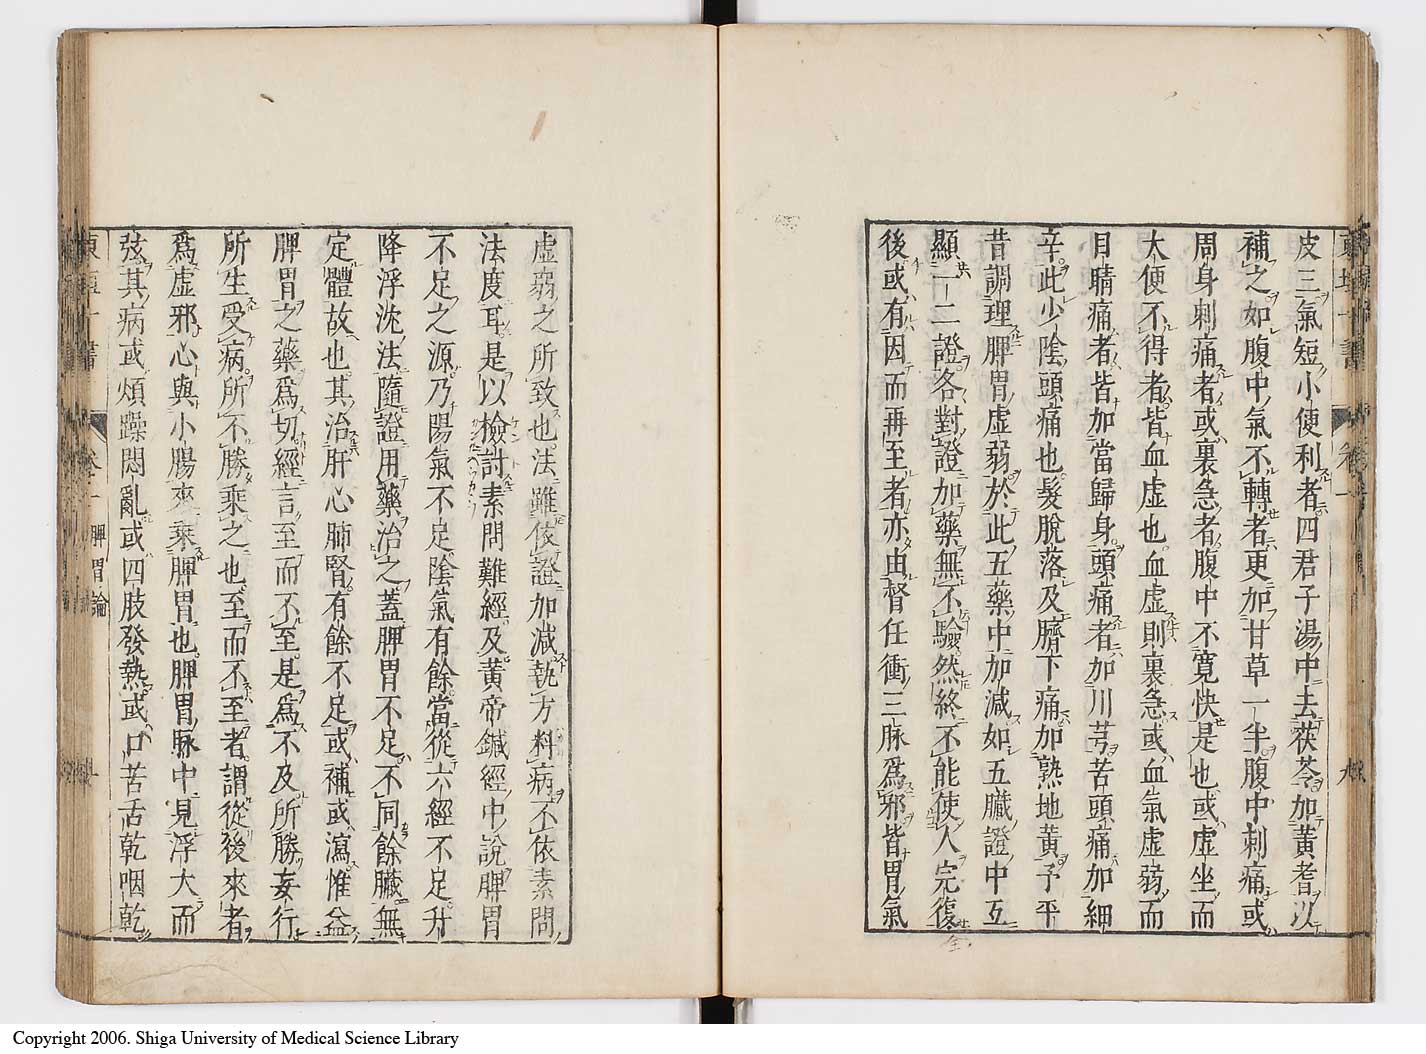 皮三氣短小便利者四君子湯中去茯苓加黃耆以
補之如腹中氣不轉者更加甘草一半腹中刺痛或
周身刺痛者或裏急者腹中不寬快是也或虛坐而
大便不得者皆血虛也血虛則裏急或血氣虛弱而
目睛痛者皆加當歸身頭痛者加川芎苦頭痛加細
辛此少陰頭痛也髮脫落及臍下痛加熟地黃予平
昔調理脾胃虛弱於此五藥中加減如五臟證中互
顯一二證各對證加藥無不驗然終不能使人完復
後或有因而再至者亦由督任衝三脉爲邪皆胃氣
虛弱之所致也法雖依證加減執方料病不依素問
法度耳是以檢討素問難經及黃帝鍼經中說脾胃
不足之源乃陽氣不足陰氣有餘當從六經不足升
降浮沈法隨證用藥治之蓋脾胃不足不同餘臟無
定體故也其治肝心肺腎有餘不足或補或瀉惟益
脾胃之藥爲切經言至而不至是爲不及所勝妄行
所生受病所不勝乘之也至而不至者謂從後來者
爲虛邪心與小腸來乘脾胃也脾胃脉中見浮大而
弦其病或煩躁悶亂或四肢發熱或口苦舌乾咽乾
東垣十書 卷一 脾胃論
Copyright 2006. Shiga University of Medical Science Library